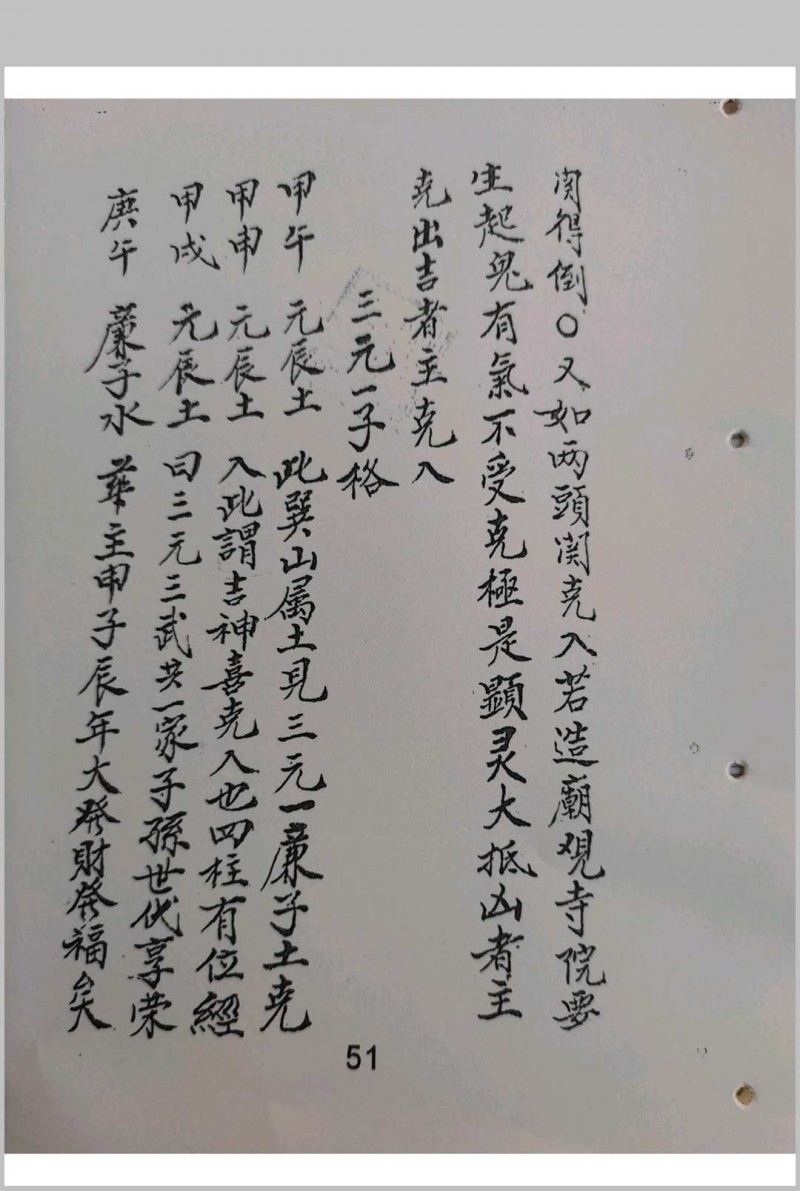 関得倒〇又如两頭関克入若造廟观寺院要
生起鬼有氣不受克極是顕灵大抵凶者主
克出吉者主克入
三元一子格
甲午 元辰土 此巽山属土見三元一廉子土克
甲申 元辰土 入此謂吉神喜克入也四柱有位經
甲戌 元辰土 曰三元三武共一家子孫世代享荣
庚午 廉子水 華主申子辰年大發財發福矣
51